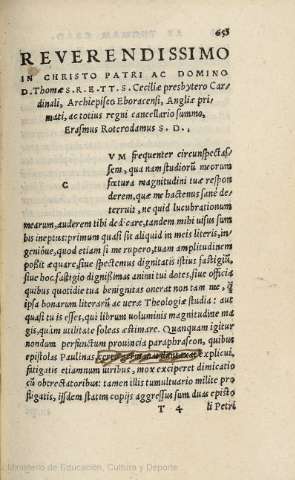 653
REVERENDISSIMO
IN CHRISTO PATRI AC DOMINO
D. Thomæ S. R. E. TT. S. Ceciliæ presbytero Car-
dinali, Archiepisco Eboracensi, Angliæ pri-
mati, ac totius regni cancellario summo,
Erasmus Roterodamus S. D.,
C
VM frequenter circunspectas-
sem, qua nam studiorũ meorum
fœtura magnitudini tuæ respon
derem, quæ me hactenus sanè de-
terruit, ne quid lucubrationum
mearum, auderem tibi dedicare, tandem mihi uisus sum
bis ineptus: primum quasi sit aliquid in meis literis, in-
genioúe, quod etiam si me rupero, tuam amplitudinem
possit æquare, siue spectemus dignitatis istius fastigiũ,
siue hoc fastigio dignißimas animi tui dotes, siue officia
quibus quotidie tua benignitas onerat non tam me,
ipsa bonarum literarũ ac ueræ Theologiæ studia: aut
quasi tu is esses, qui librum uoluminis magnitudine ma
gis, quàm utilitate soleas æstimare. Quanquam igitur
nondum perfunctum prouincia paraphraseon, quibus
epistolas Paulinas explicui,
fatigatis etiamnum uiribus, mox exciperet dimicatio
cũ obtrectatoribus: tamen illis tumultuario milite pro
fligatis, iisdem statim copijs aggressus sum duas episto
T 4 li Petri
Ministerio de Educación, Cultura y Deporte